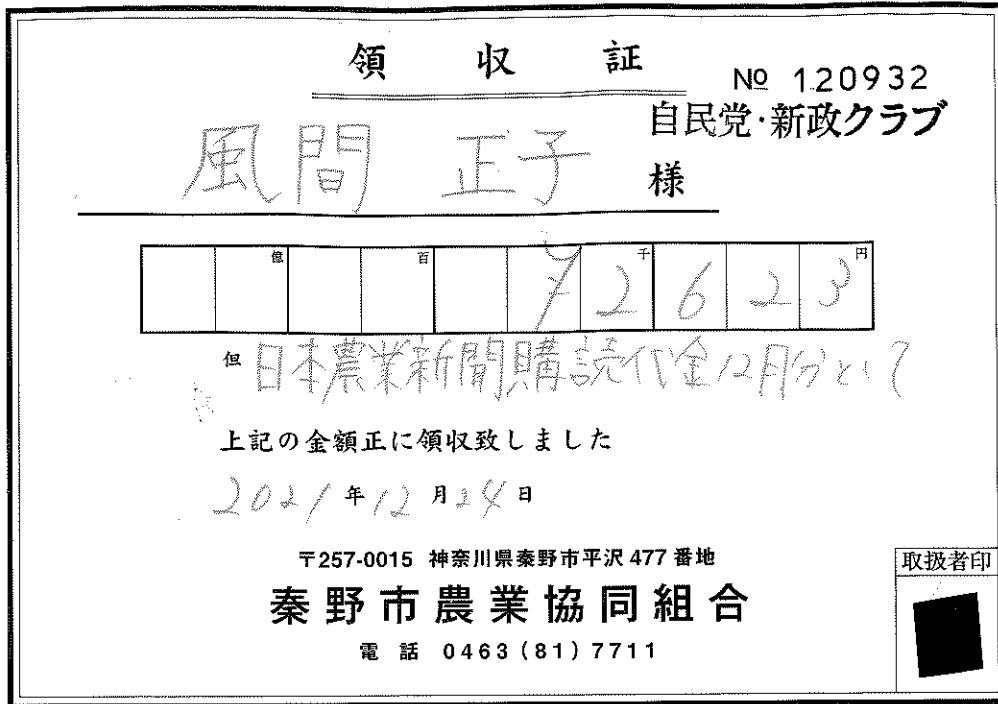 領収証
№ 120932
自民党·新政クラブ
風間 正子 様
億 百 千 円
¥2623
但 日本農業新聞購読代金12月分として
上記の金額正に領収致しました
2021年12月24日
〒257-0015 神奈川県秦野市平沢477番地
秦野市農業協同組合
電話 0463(81)7711
取扱者印